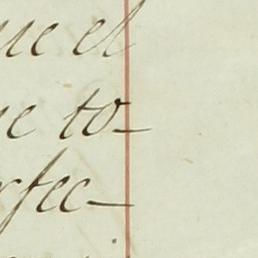 ue el
ue to-
rfec-